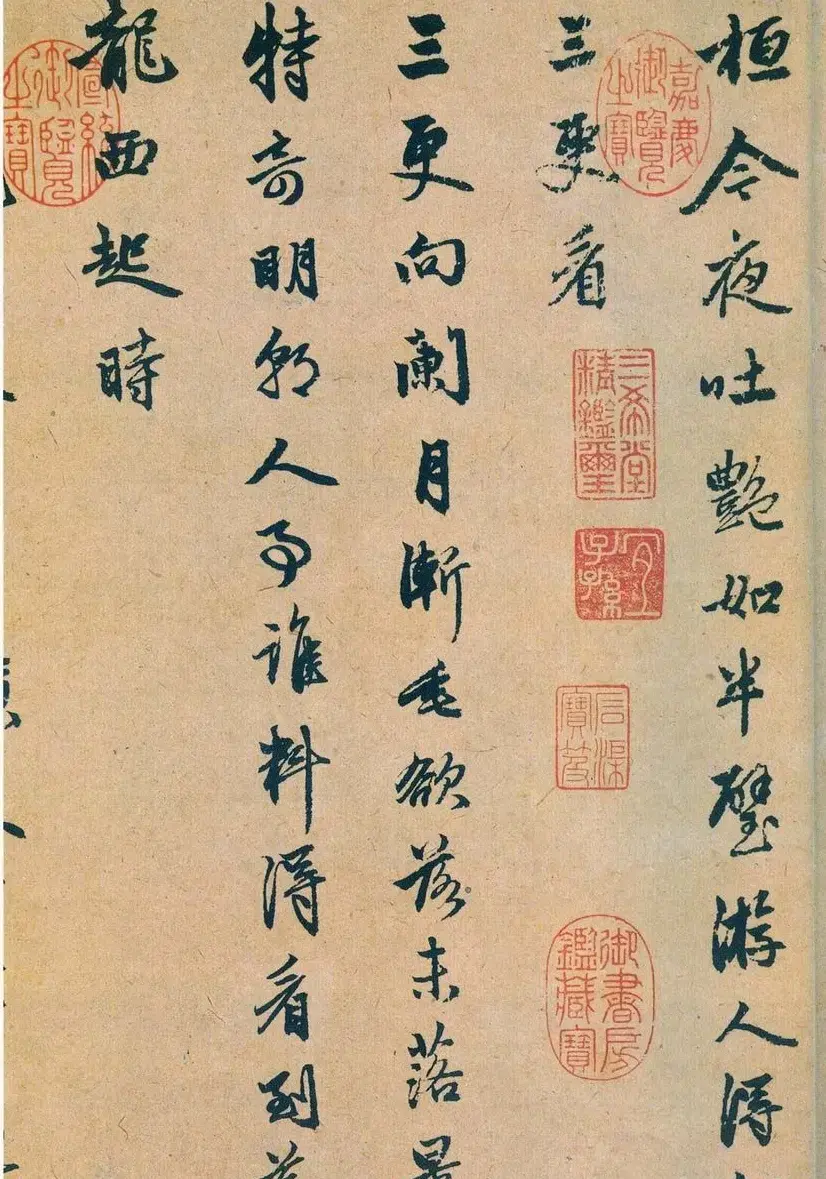 桓今夜吐艷如半璧游人得
三更看
嘉慶御覽之寶
三希堂精鑑璽
宜子孫
石渠寶笈
御書房鑑藏寶
三更向闌月漸垂欲落未落景
特奇明朝人事誰料得看到蒼
龍西起時
宣統御覽之寶